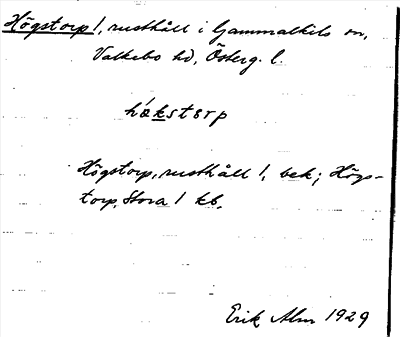 Högstorp 1, rusthåll i Gammalkils sn,
Valkebo hd, Österg. l.
hǿkstɛrp
Högstorp, rusthåll 1, bek; Högs-
torp, Stora 1 kb.
Erik Alm 1929